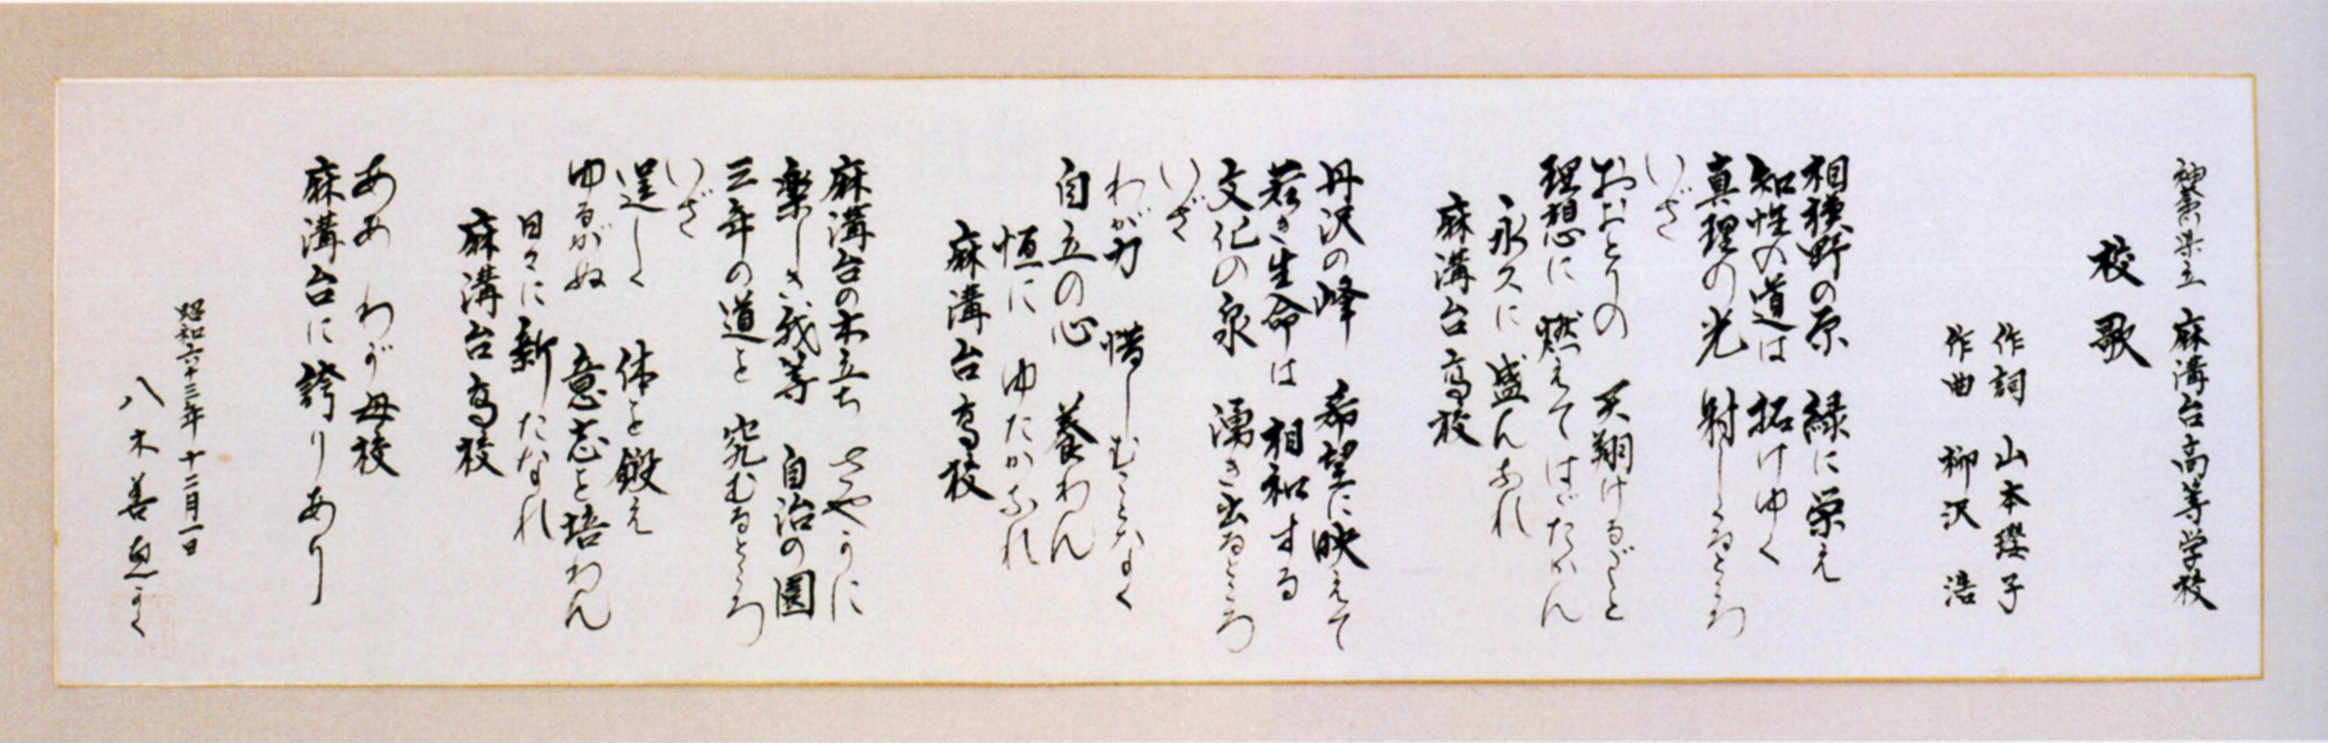 神奈川県立 麻溝台高等学校
校歌
作詞 山本瓔子
作曲 柳沢 浩
相模野の原 緑に栄え
知性の道は 拓けゆく
真理の光 射しくるところ
いざ
おおとりの 天翔けるごと
理想に 燃えてはばたかん
永久に 盛んなれ
麻溝台高校
丹沢の峰 希望に映えて
若き生命は 相和する
文化の泉 湧き出るところ
いざ
わが力 惜しむことなく
自立の心 養わん
恒に ゆたかなれ
麻溝台高校
麻溝台の木立ち さやかに
楽しき我等 自治の園
三年の道を 究むるところ
いざ
逞しく 体を鍛え
ゆるがぬ 意志を培わん
日々に新たなれ
麻溝台高校
ああ わが母校
麻溝台に誇りあり
昭和六十三年 十二月一日
八木善